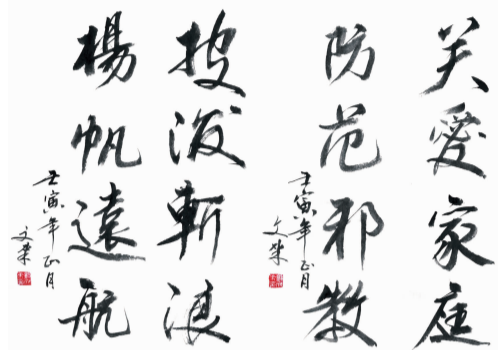 关愛家庭
防范邪教
壬寅年正月
文荣
披波斬浪
楊帆遠航
壬寅年正月
文荣